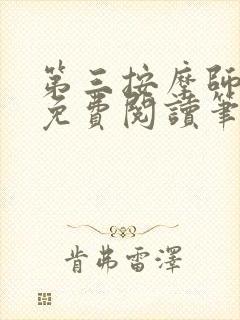 第三按摩師
免費閱讀筆
肯弗雷澤